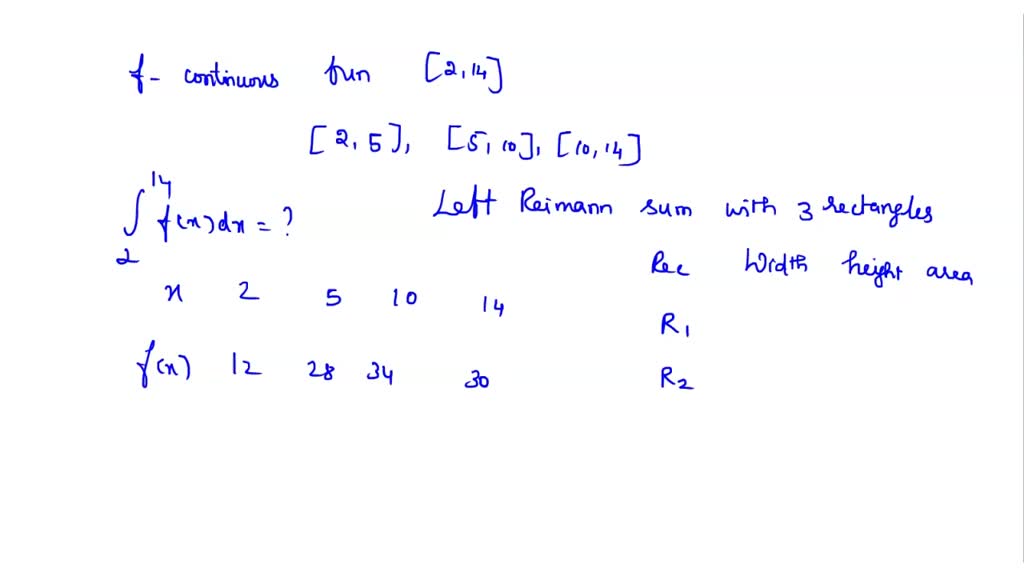 f- continuous fun [2,14]
[2,5], [5,10], [10,14]
∫₂¹⁴ f(x)dx = ?
Left Reimann sum with 3 rectangles
Rec Width height area
x 2 5 10 14
R1
f(x) 12 28 34 30
R2